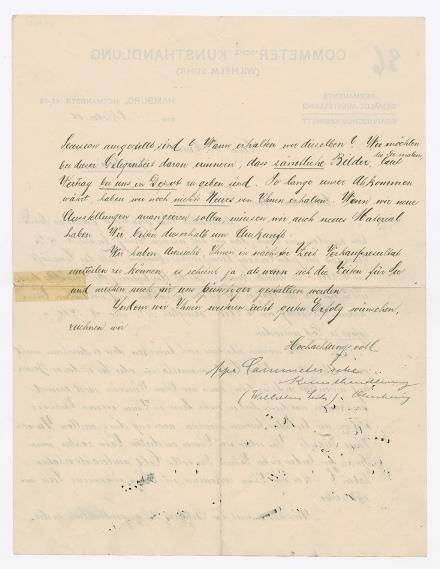 Session ausgestellt sind? Wann erhalten wir dieselben? Wir möchten
bei dieser Gelegenheit daran erinnern, dass sämtliche Bilder, die Sie malen, laut
Vertrag bei uns in Depot zu geben sind. So lange unser Abkommen
währt, haben wir noch nichts Neues von Ihnen erhalten. Wenn wir neue
Ausstellungen arrangieren sollen, müssen wir auch neues Material
haben. Wir bitten deshalb um Auskunft.
Wir haben Aussicht, Ihnen in nächster Zeit Verkaufsresultat
mitteilen zu können, es scheint ja, als wenn sich die Zeiten für Sie
und mithin auch für uns günstiger gestalten würden.
Indem wir Ihnen weiteren recht guten Erfolg wünschen,
zeichnen wir
Hochachtungsvoll
ppa Commeter'sche
Kunsthandlung
(Wilhelm Suhr)